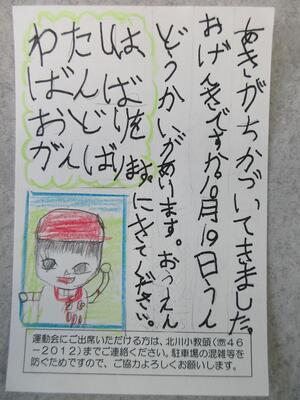 あきがちかづいてきました。
おげんきですか。10月19日うん
どうかいがあります。おうえん
にきてください。
わたしは、
ばんば
おどりを
がんばります。
運動会にご出席いただける方は、北川小教頭(☎46
-2012)までご連絡ください。駐車場の混雑等を
防ぐためですので、ご協力よろしくお願いします。